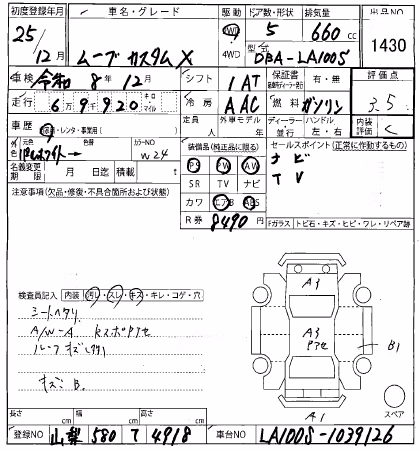 初度登録年月 車名・グレード 駆動 ドア数・形状 排気量 出品NO
25/12月 ムーブカスタムX 2WD 4WD 5 660cc 1430
型式 DBA-LA100S
車検 令和8年12月 シフト 1AT 保証書 有・無 評価点
走行 69920 キロ マイル 冷房 AAC 燃料 ガソリン 3.5
車歴 自家・レンタ・事業用( ) 定員 人 外車モデル 年 ディーラー 並行 ハンドル 左・右 内装評価 C
元色 パールホワイト 色替 カラーNO W24
名義変更期限 月 日迄 積載 t
装備品(純正品に限る) セールスポイント(正常に作動するもの)
PS PW AW ナビ
SR TV ナビ TV
カワ エアB ABS
R券 8490円
注意事項(欠品・修復・不具合箇所および状態)
Fガラス トビ石・キズ・ヒビ・ワレ・リペア跡
検査員記入 内装 汚レ・スレ・キズ・キレ・コゲ・穴
シートヘタリ
A/W-A
キズB
A3
A3
B1
A1
スペア
長さ cm 幅 cm 高さ cm
登録NO 山梨 580 て 4918 車台NO LA100S-1039126